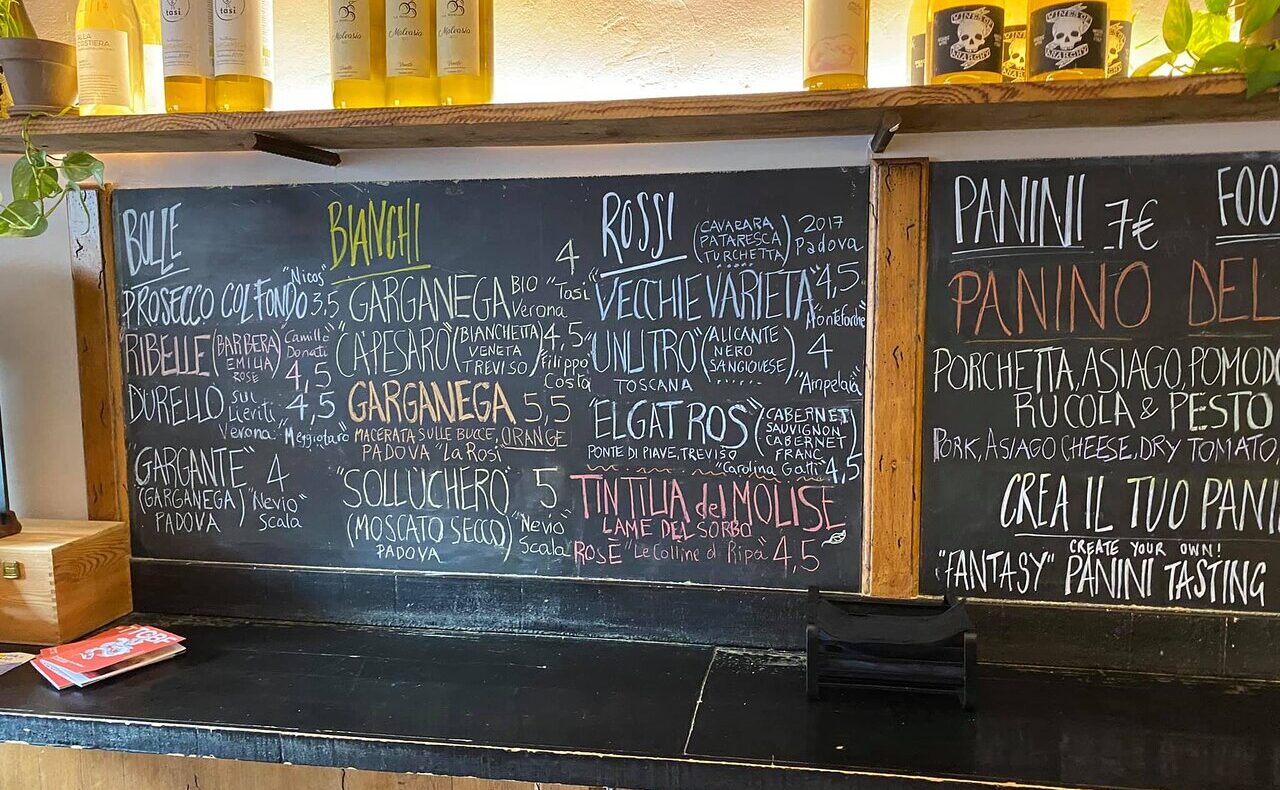 tasi
tasi
Malvasia
Malvasia
WINES OF
ANARCHY
WINES OF
ANARCHY
BOLLE
"Nicos"
PROSECCO COL FONDO 3,5
"RIBELLE" (BARBERA
EMILIA
ROSE) Camillo
Donati
4,5
DURELLO SUI
Lieviti
Verona 4,5
"Meggiolaro"
"GARGANTE" 4
(GARGANEGA) "Nevio"
PADOVA Scala
BIANCHI
4
GARGANEGA BIO "Tasi"
Verona
"CA'PESARO" (BIANCHETTA
VENETA
TREVISO) 4,5
Filippo
Costa
GARGANEGA 5,5
MACERATA SULLE BUCCE, ORANGE
PADOVA "La Rosi"
"SOLLUCHERO" 5
(MOSCATO SECCO) "Nevio"
PADOVA Scala
ROSSI (CAVARARA
PATARESCA
TURCHETTA) 2017
Padova
"VECCHIE VARIETA" 4,5
"UNLITRO" (ALICANTE
NERO
SANGIOVESE) 4
TOSCANA "Ampelaia"
"ELGATROS" (CABERNET
SAUVIGNON
CABERNET
FRANC)
PONTE DI PIAVE, TREVISO
"Carolina Gatti" 4,5
TINTILIA del MOLISE
LAME DEL SORBO
ROSE "Le Colline di Ripa" 4,5
PANINI 7€
FOO
PANINO DEL
PORCHETTA, ASIAGO, POMOD
RUCOLA & PESTO
PORK, ASIAGO CHEESE, DRY TOMATO,
CREA IL TUO PANI
CREATE YOUR OWN!
"FANTASY" PANINI TASTING